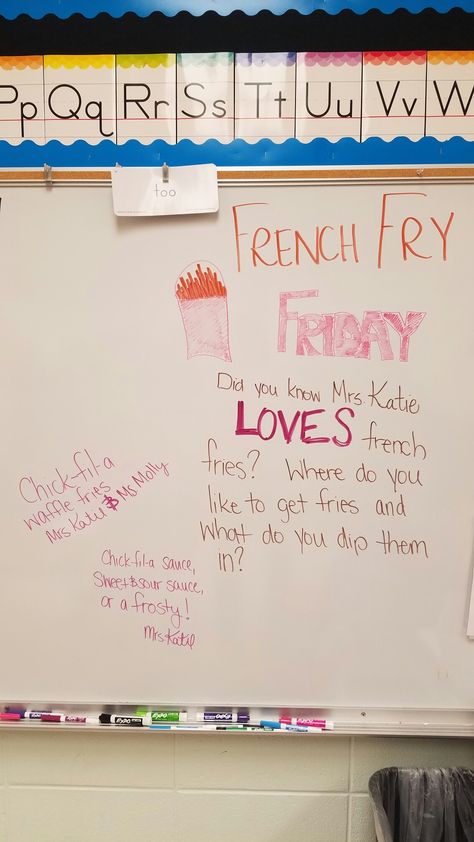 Pp Qq Rr Ss Tt Uu Vv W
too
FRENCH FRY
FRIDAY
Did you know Mrs. Katie
LOVES french
fries? Where do you
like to get fries and
what do you dip them
in?
Chick-fil-a
waffle fries
Mrs Katie & Ms Molly
Chick-fil-a sauce,
Sweet & sour sauce,
or a frosty!
Mrs Katie
EXPO
EXPO